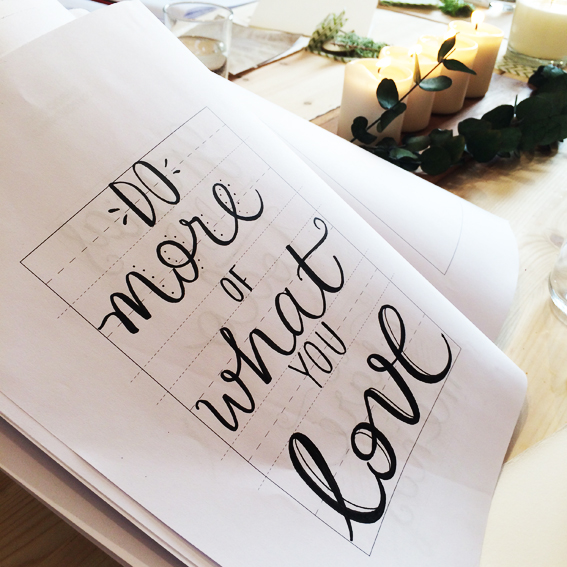 DO
more
OF
what
YOU
love